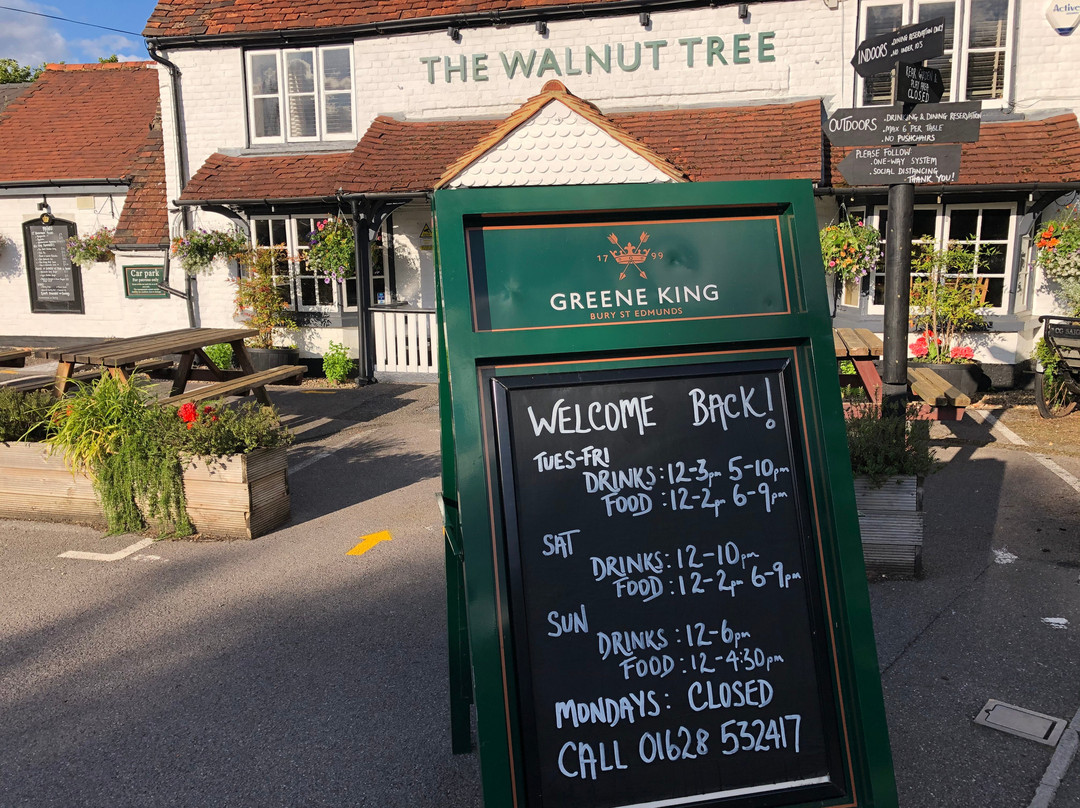 THE WALNUT TREE
INDOORS
. DINING RESERVATION ONLY
. NO UNDER 10'S
REAR GARDEN &
PLAY AREA
CLOSED
OUTDOORS
. DRINKING & DINING RESERVATION
. MAX 6 PER TABLE
. NO PUSHCHAIRS
PLEASE FOLLOW:
. ONE-WAY SYSTEM
. SOCIAL DISTANCING
THANK YOU!
Active
Car park
for patrons only
17 99
GREENE KING
BURY ST EDMUNDS
WELCOME BACK!
TUES-FRI
DRINKS: 12-3pm 5-10pm
FOOD: 12-2pm 6-9pm
SAT
DRINKS: 12-10pm
FOOD: 12-2pm 6-9pm
SUN
DRINKS: 12-6pm
FOOD: 12-4:30pm
MONDAYS: CLOSED
CALL 01628 532417